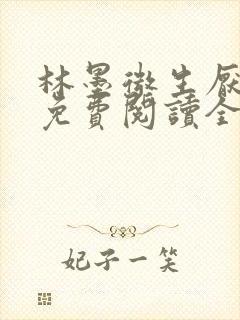 林墨微生厭
免費閱讀全
妃子一笑